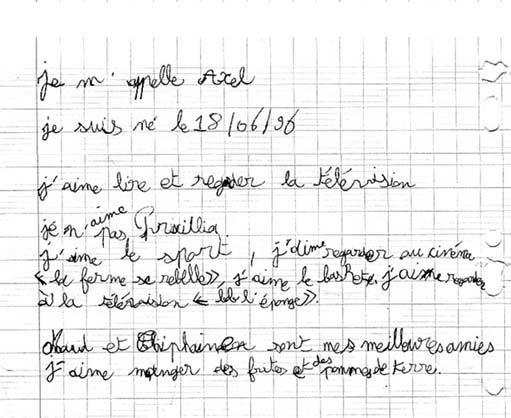 je m'appelle Axel
je suis né le 18/06/96
j'aime lire et regarder la télévision
je n'aime pas Prixillia
j'aime le sport, j'dime regarder au cinéma
« la ferme se rebelle », j'aime le basket, j'aime regarder
à la télévaision « bob l'éponge ».
Maud et sont mes meilleures amies
J'aime manger des frites et des pommes de terre.